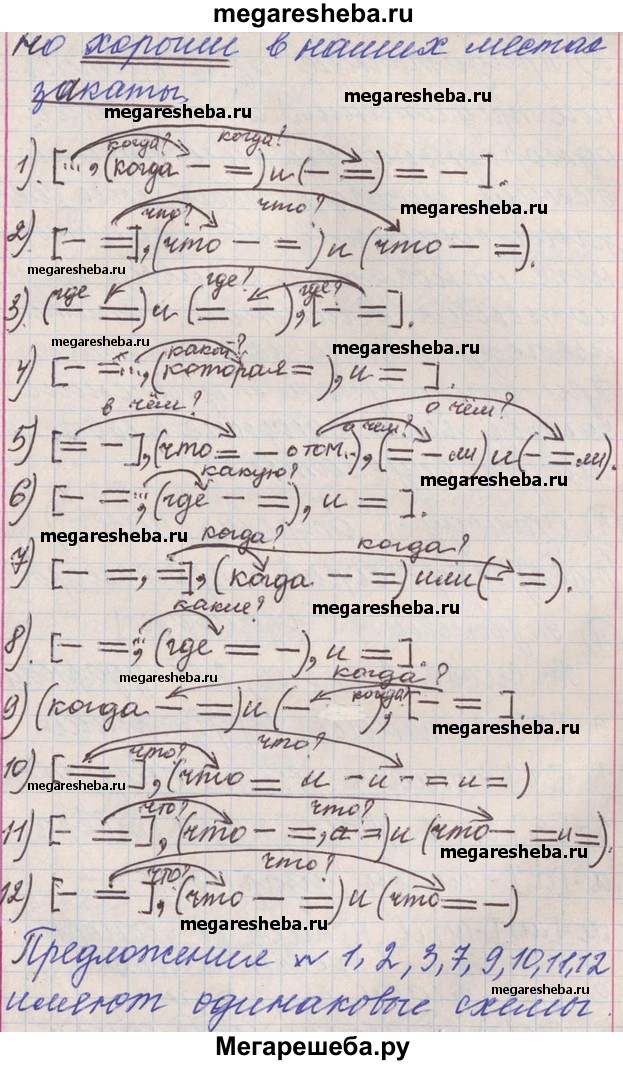 megaresheba.ru
но хороши в наших местах
закаты.
megaresheba.ru
megaresheba.ru
когда? когда?
1). [..., (когда – =) и (– =) = – ].
megaresheba.ru
что? что?
2). [– =], (что – =) и (что – =).
megaresheba.ru
где? где?
3). (где – =) и (= –), [– =].
megaresheba.ru
какой?
4) [– = ..., (которая =), и = ].
в чём? о чём? о чем?
5) [= –], (что = – о том..), (= – ли) и (– = ли).
megaresheba.ru
какую?
6) [– = ..., (где – =), и = ].
megaresheba.ru
когда? когда?
7) [– =, =], (когда – =) или (– =).
megaresheba.ru
какие?
8). [– = ..., (где = –), и =].
megaresheba.ru
когда? когда?
9) (когда – =) и (– ), [– = ].
megaresheba.ru
что? что?
10) [= ], (что = и – и – = и =)
megaresheba.ru
что? что?
11) [– = ], (что – =, а =) и (что – = и =).
megaresheba.ru
что? что?
12) [– = ], (что – =) и (что = –)
megaresheba.ru
Предложения № 1, 2, 3, 7, 9, 10, 11, 12
имеют одинаковые схемы.
megaresheba.ru
Мегарешеба.ру